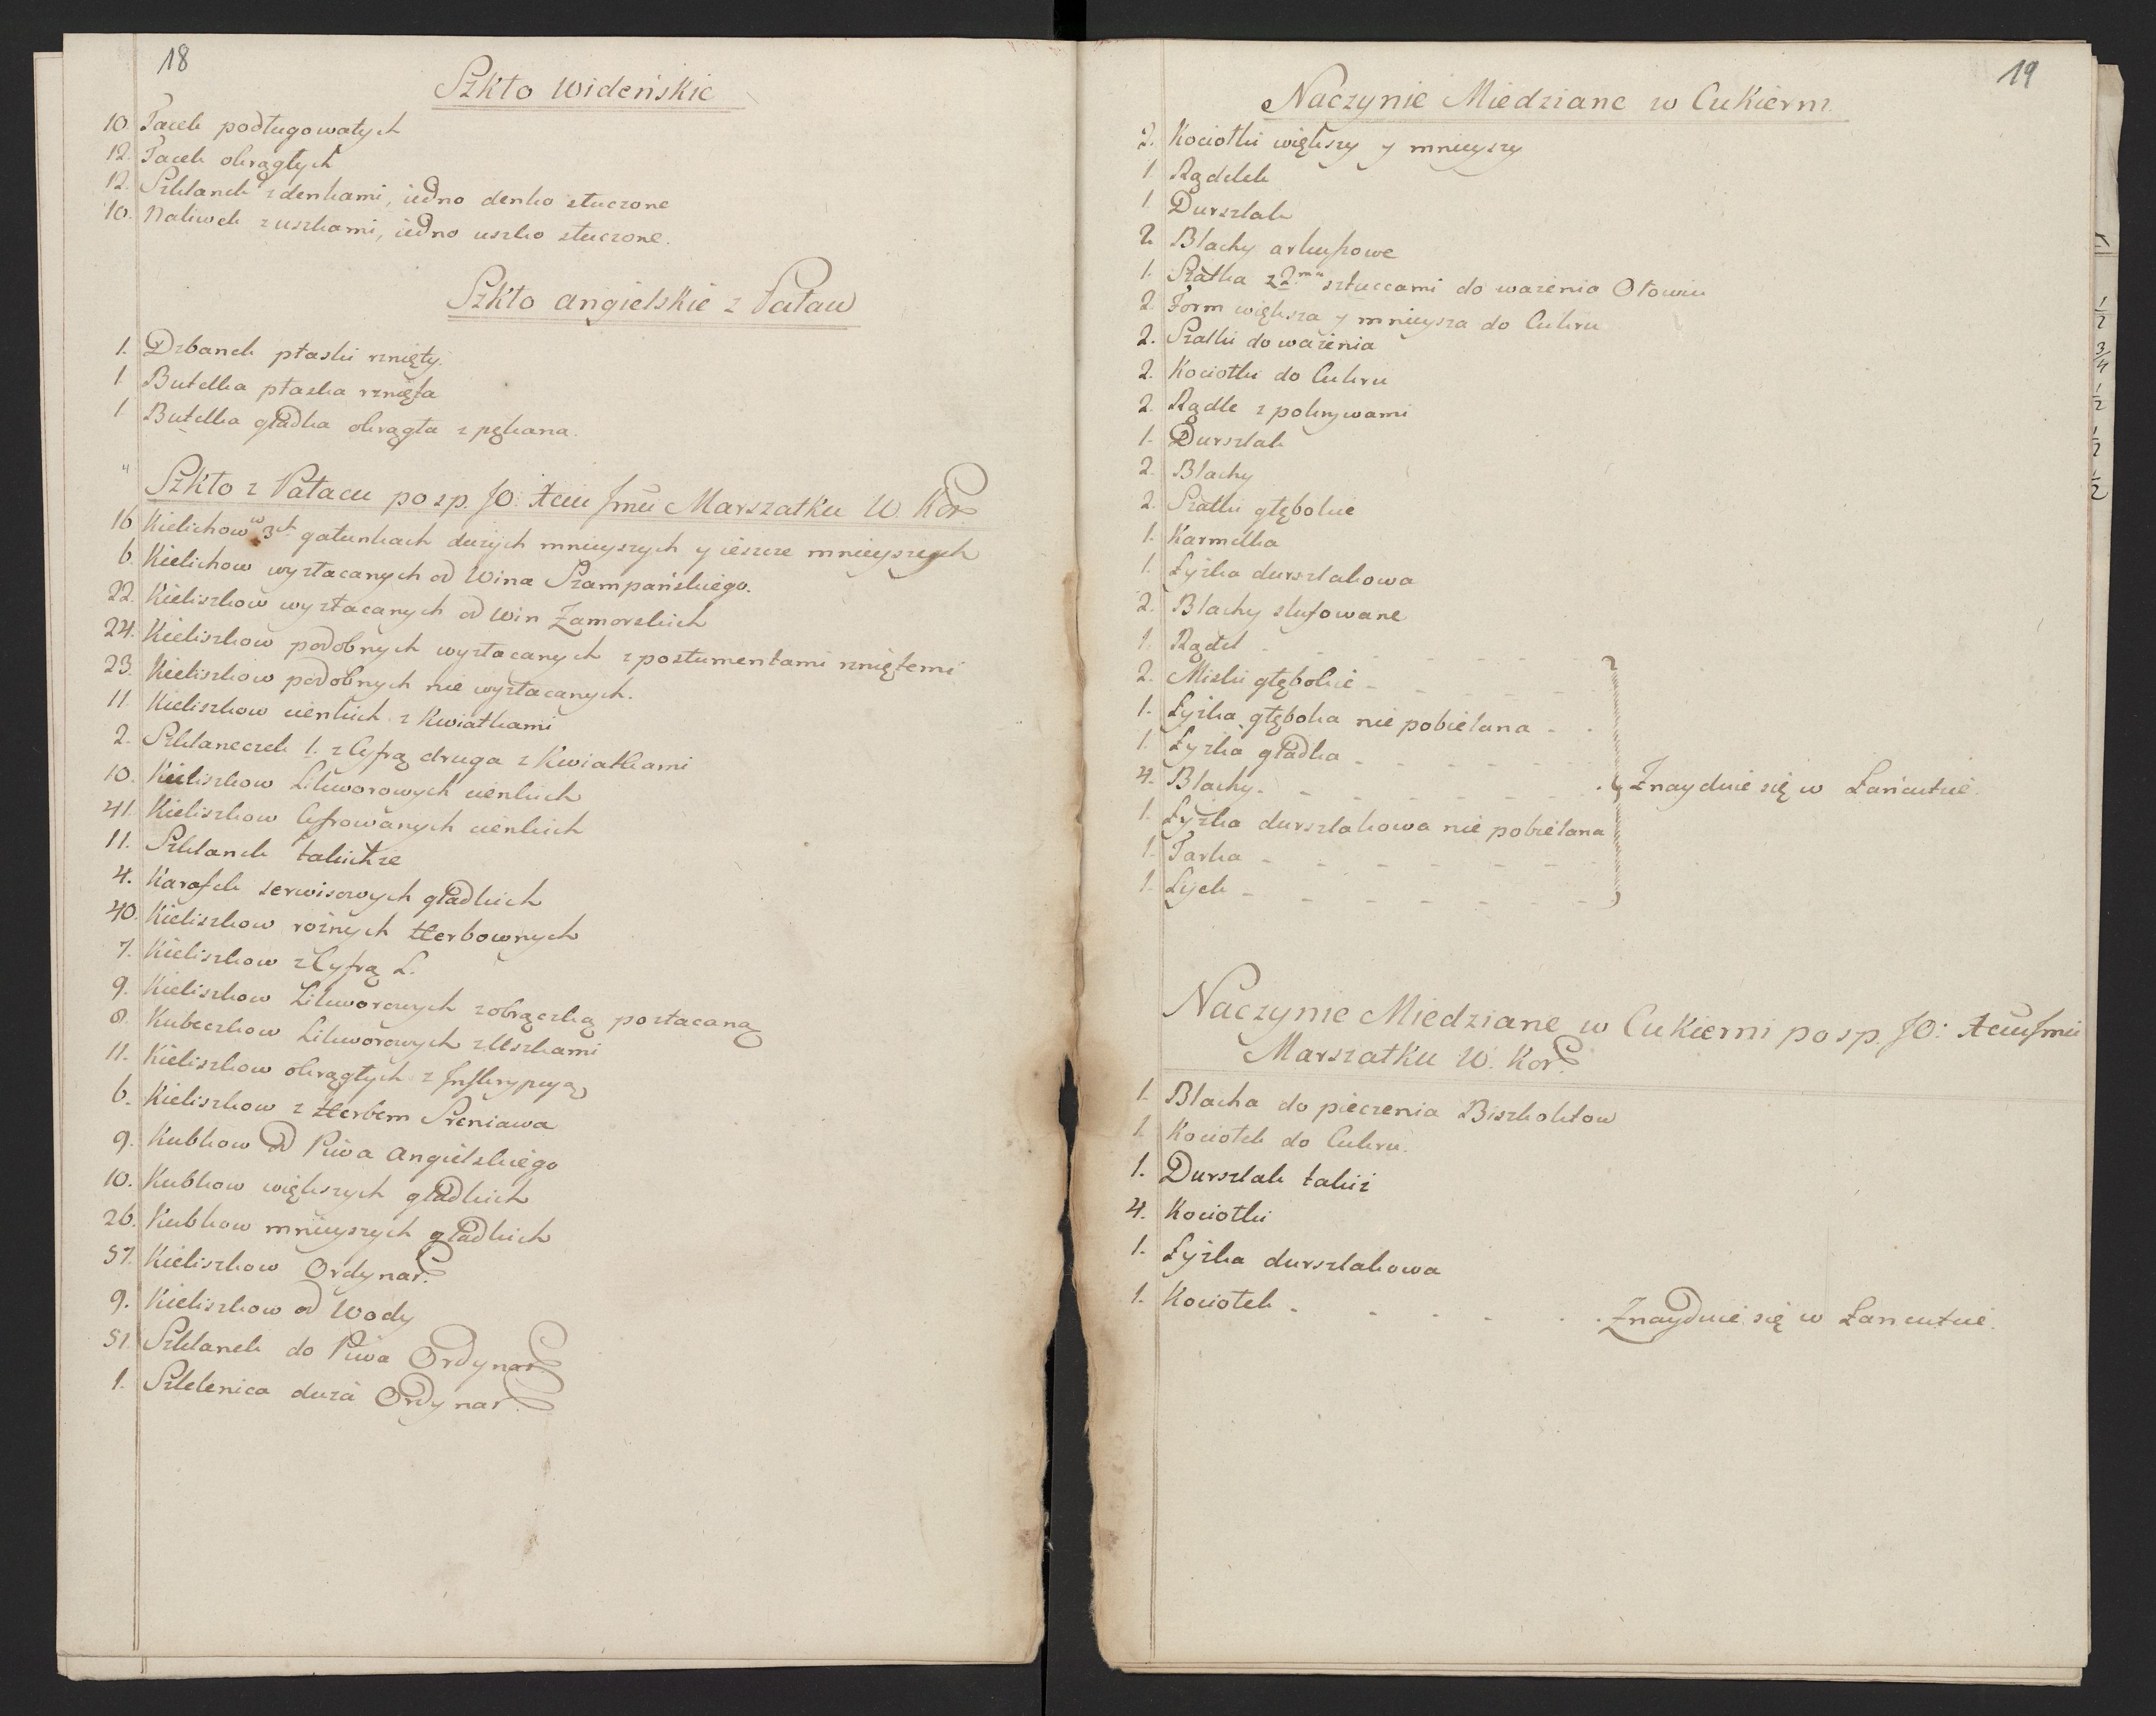 18
Szkło Wideńskie
10. Tacek podługowatych
12. Tacek okrągłych
12. Szklanek z denkami, iedno denko stuczone
10. Naliwek z uszkami, iedno uszko stuczone.
Szkło angielskie z Puław
1. Dzbanek płaski rznięty.
1. Butelka płaska rznięta
1. Butelka gładka okrągła z pękana.
" Szkło z Pałacu po sp. JO. Xciu Jmci Marszałku W. Kor.
16 Kielichow w 3ch gatunkach dużych mnieyszych y ieszcze mnieyszych
6. Kielichow wyzłacanych od Wina Szampańskiego.
22. Kieliszkow wyzłacanych od Win Zamorskich
24. Kieliszkow podobnych wyzłacanych z postumentami rzniętemi
23. Kieliszkow podobnych nie wyzłacanych.
11. Kieliszkow cienkich z Kwiatkami
2. Szklaneczek 1. z Cyfrą druga z Kwiatkami
10. Kieliszkow Likworowych cienkich
41. Kieliszkow Cyfrowanych cienkich
11. Szklanek takichże
4. Karafek serwisowych gładkich
40. Kieliszkow rożnych Herbownych
7. Kieliszkow z Cyfrą L.
9. Kieliszkow Likworowych z obrączką pozłacaną
8. Kubeczkow Likworowych z Uszkami
11. Kieliszkow okrągłych z Inskrypcyą
6. Kieliszkow z Herbem Sreniawa
9. Kubkow od Piwa Angielskiego
10. Kubkow większych gładkich
26. Kubkow mnieyszych gładkich
57. Kieliszkow Ordynar.
9. Kieliszkow od Wody
51. Szklanek do Piwa Ordynar.
1. Szklenica duża Ordynar.
19
Naczynie Miedziane w Cukierni.
2. Kociołki większy y mnieyszy
1. Rądelek
1. Durszlak
2. Blachy arkuszowe
1. Szalka z 2ma sztuccami do ważenia Ołowiu
2. Form większa y mnieysza do Cukru
2. Szalki do ważenia
2. Kociołki do Cukru
2. Rądle z pokrywami
1. Durszlak
2. Blachy
2. Szalki głębokie
1. Karmelka
1. Łyżka durszlakowa
2. Blachy slufowane
1. Rądel
2. Miski głębokie
1. Łyżka głęboka nie pobielana
1. Łyżka gładka
4. Blachy. Znayduie się w Łańcucie.
1. Łyżka durszlakowa nie pobielana
1. Tarka
1. Lyek
Naczynie Miedziane w Cukierni po sp. JO: Xciu Jmci
Marszałku W. Kor.
1. Blacha do pieczenia Biszkoktow
1. Kociołek do Cukru.
1. Durszlak takiż
4. Kociołki
1. Łyżka durszlakowa
1. Kociołek Znayduie się w Łancucie.
1/2
3/4
1/2
1/2
1/2